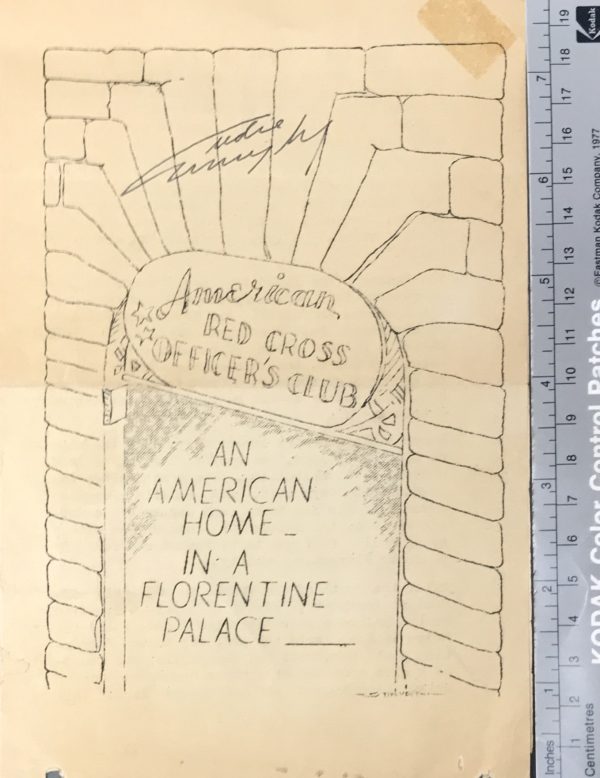 American
RED CROSS
OFFICER'S CLUB
AN
AMERICAN
HOME –
IN · A
FLORENTINE
PALACE ___
Inches
1 2 3 4 5 6 7
Centimetres
1 2 3 4 5 6 7 8 9 10 11 12 13 14 15 16 17 18 19
KODAK Color Control Patches
©Eastman Kodak Company, 1977
Kodak